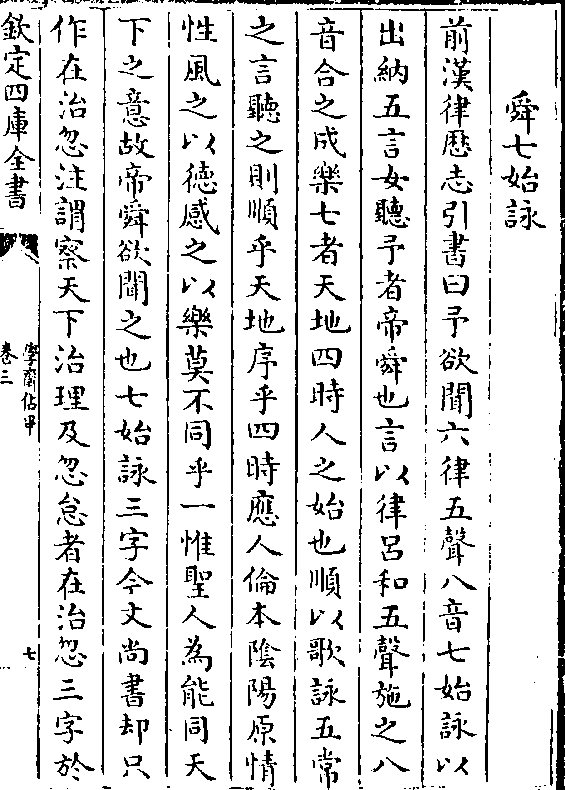 舜七始詠
前漢律厯志引書曰予欲聞六律五聲八音七始詠以
出納五言女聽予者帝舜也言以律呂和五聲施之八
音合之成樂七者天地四時人之始也順以歌詠五常
之言聽之則順乎天地序乎四時應人倫本陰陽原情
性風之以徳感之以樂莫不同乎一惟聖人為能同天
下之意故帝舜欲聞之也七始詠三字今文尚書却只
作在治忽注謂察天下治理及忽怠者在治忽三字於
欽定四庫全書
學齋佔畢
卷三
七